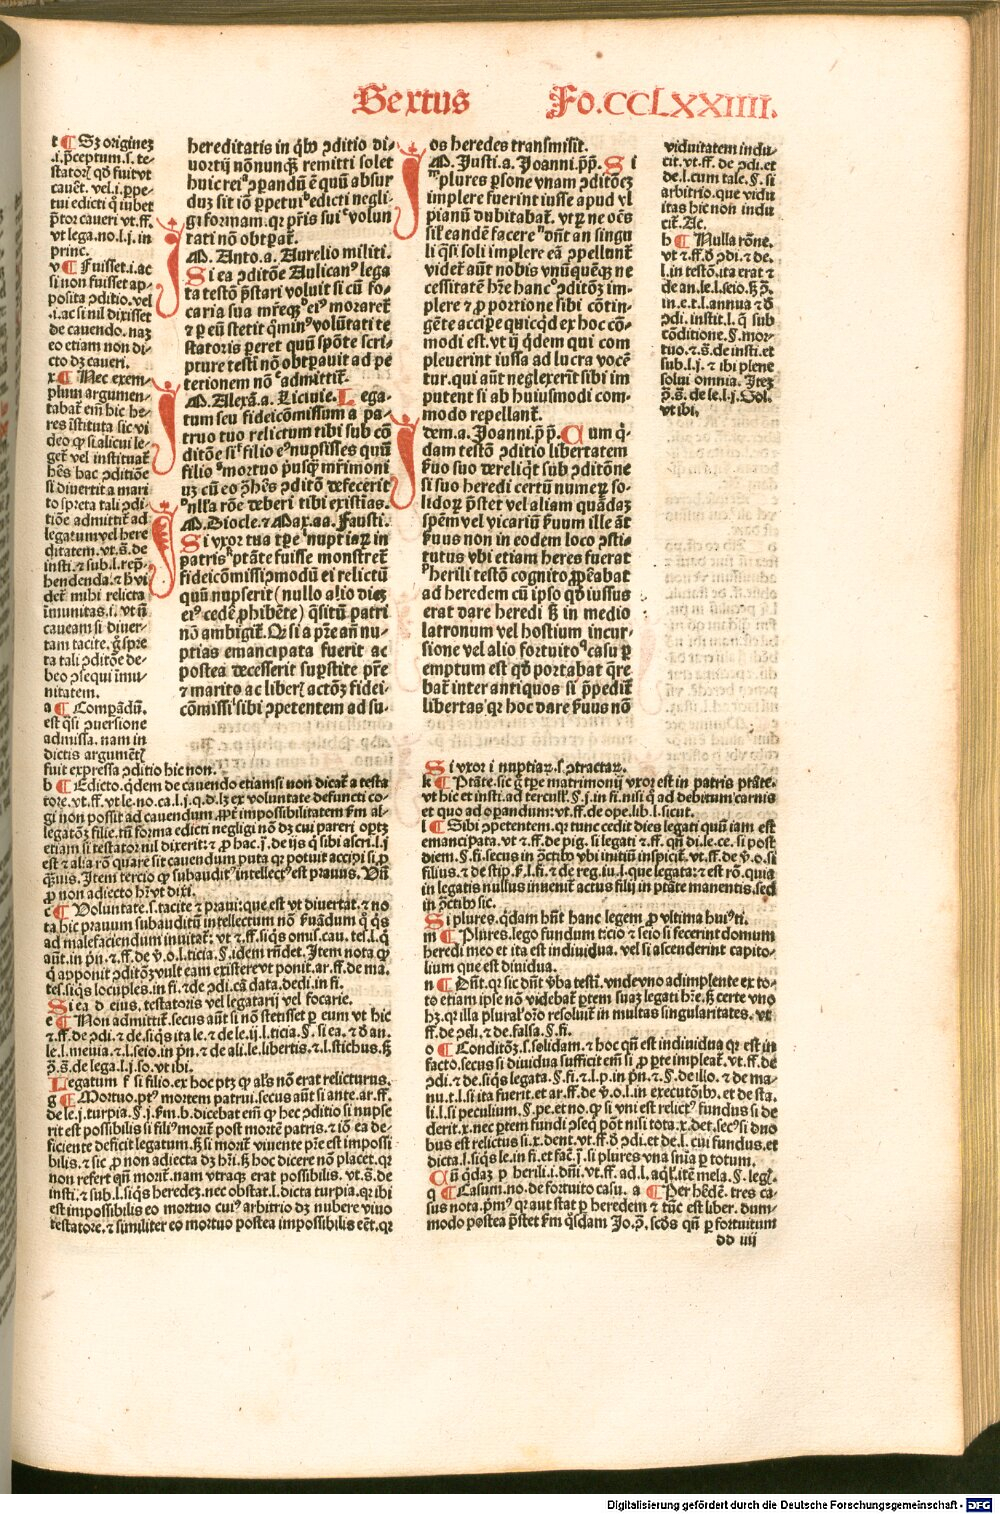 Sextus Fo.CCLXXIIII.
t ¶ Sꝫ origineꝫ
.i. p̄ceptum .s. te-
statoris qđ fuit vt
cauēt. vel .i. ꝑpe-
tui edicti q̄ iubet
p̄tor caueri vt .ff.
vt lega. no. l. j. in
princ.
v ¶ Fuisset .i. ac
si non fuisset ap-
posita ꝯditio. vel
.i. ac si nil dixisset
de cauendo. naꝫ
eo etiam non di-
cto dꝫ caueri.
x ¶ Nec exem-
plum argumen-
tabat̄ em̄ hic he-
res īstituta sic vi
deo ꝙ si alicui le-
get̄ vel instituat̄
hēs hac ꝯditiōe
si diuertit a mari
to spreta tali ꝯdi-
tiōe admittit̄ ad
legatum vel here
ditatem. vt .s̄. de
insti. ⁊ sub. l. rep̄-
hendenda. ⁊ h̄ vi
det̄ mihi relicta
īmunitas .i. vt nō
caueam si diuer-
tam tacite. ḡ spre
ta tali ꝯditiōe de-
beo ꝯsequi īmu-
nitatem.
a ¶ Compādū.
est q̄si ꝯuersione
admissa. nam in
dictis argumēt̄
fuit expressa ꝯditio hic non.
hereditatis in qͥbꝰ ꝯditio di-
uortij nōnunqͣꝫ remitti solet
huic rei ꝯꝑandū ē quū absur
duꝫ sit iō ꝑpetui edicti negli-
gi formam. qꝛ pr̄is sui volun
tati nō obtꝑat̄.
M. Anto. a. Aurelio militi.
Si ea ꝯditōe Aulicanꝰ lega
ta testō p̄stari voluit si cū fo-
caria sua mr̄eqꝫ eiꝰ moraret̄
⁊ ꝑ eū stetit qͦminꝰ volūtati te
statoris ꝑeret quū spōte scri-
pture testī nō obtꝑauit ad pe
titionem nō admittit̄.
M. Alexā. a. Liciuie. Lega-
tum seu fideicōmissum a pa-
truo tuo relictum tibi sub cō
ditōe si filio eꝰ nupsisses quū
filio mortuo pͥusqͣꝫ mr̄imoni
uꝫ cū eo ꝯhēs ꝯditō defecerit
nlla rōe deberi tibi existias.
M. Diocle. ⁊ Max. aa. Fausti.
Si vxor tua tꝑe nuptiaꝝ in
patris ptāte fuisse monstret̄
fideicōmissi ꝯmodū ei relictū
quū nupserit (nullo alio dieꝫ
eiꝰ cedē ꝓhibēte) q̄situ patri
nō ambigit̄. Qꝛ si a pr̄e an̄ nu-
ptias emancipata fuerit ac
postea decesserit suꝑstite pr̄e
⁊ marito ac liber̄ actōꝫ fidei-
cōmissi sibi ꝯpetentem ad su-
os heredes transmisit.
M. Justi. a. Joanni. pp̄. Si
plures ꝑsone vnam ꝯditōeꝫ
implere fuerint iusse apud vl
pianū dubitabat̄. vtꝝ ne oēs
sil̄ eandē facere dn̄t an singu
li q̄si soli implere eā ꝯpellant̄
videt̄ aūt nobis vnūquēqꝫ ne
cessitatē hr̄e hanc ꝯditōꝫ im-
plere ⁊ ꝓ portione sibi cōtin-
gēte acciꝑe quicqͥd ex hoc cō-
modi est. vt ij qͥdem qui com
pleuerint iussa ad lucra vocē
tur. qui aūt neglexerīt sibi im
putent si ab huiusmodi com-
modo repellant̄.
Idem. a. Joanni. pp̄. Cum qͥ-
dam testō ꝯditio libertatem
s̄uo suo dereliqͥt sub ꝯditōne
si suo heredi certū numeꝝ so-
lidoꝝ p̄stet vel aliam quādaꝫ
spēm vel vicariū s̄uum ille aūt
s̄uus non in eodem loco ꝯsti-
tutus vbi etiam heres fuerat
herili testō cognito ꝓꝑabat
ad heredem cū ipso qđ iussus
erat dare heredi ⁊ in medio
latronum vel hostium incur-
sione vel alio fortuito casu ꝑ
emptum est qđ portabat q̄re
bat̄ inter antiquos si ꝑpedit̄
libertas qꝛ hoc dare s̄uus nō
viduitatem indu-
cit. vt .ff. de ꝯdi. et
de. l. cum tale. §. si
arbitrio. que vidu
itas hic non indu
cit̄. Ac.
h ¶ Nulla rōne.
vt .s̄. ff. đ ꝯdi. ⁊ de.
l. in testō. ita erat ⁊
de an. le. l. seio. §. p̄.
in. e. t. l. annua ⁊ đ
ꝯdi. instit. l. q̄ sub
cōditione. §. mor-
tuo. ⁊ .s̄. de insti. et
sub. l. j. ⁊ ibi plene
solui omnia. Itēꝫ
p̄. s̄. de le. l. j. Sol.
vt ibi.
b ¶ Edicto. qͥdem de cauendo etiamsi non dicat̄ a testa
tore. vt .ff. vt le. no. ca. l. j. q. d. lꝫ ex voluntate defuncti co-
gi non possit ad cauendum. ꝓpt̄ impossibilitatem s̄m al-
legatōꝫ filie. tū forma edicti negligi nō dꝫ cui pareri oportꝫ
etiam si testator nil dixerit: ⁊ ꝓ hac .j. de ijs q̄ sibi ascri. l. j
est ⁊ alia rō quare sit cauendum puta qꝛ potuit accipi si ꝓ
q̄ꝫuis. Item tercio ꝙ subauditꝰ intellectꝰ est prauus. Vn̄
ꝓ non adiecto hr̄i vt dixi.
c ¶ Voluntate .s. tacite ⁊ praui: que est vt diuertat. ⁊ no
ta hic prauum subauditū intellectum nō s̄uandum q̄ q̄s
ad malefaciendum inuitat̄: vt ⁊ .ff. siq̄s omis. cau. tes. l. q̄
aūt. in pn̄. ⁊ .ff. de v̄. o. l. titia. §. idem rn̄det. Item nota ꝙ
q̄ apponit ꝯditōꝫ vult eam existere vt ponit. ar. ff. de ma.
tes. siq̄s locuples. in fi. ⁊ de ꝯdi. cā data. dedi. in fi.
Si ea d eius. testatoris vel legatarij vel focarie.
e ¶ Non admittit̄. secus aūt si nō stetisset ꝑ eum vt hic
⁊ .ff. de ꝯdi. ⁊ de. siq̄s ita le. ⁊ de le. ij. l. titia. §. si ea. ⁊ đ an.
le. l. meuia. ⁊ l. seio. in pn̄. ⁊ de ali. le. libertis. ⁊ l. stichus. §
p̄. s̄. de lega. l. j. so. vt ibi.
Legatum f si filio. ex hoc ptꝫ ꝙ al̄s nō erat relicturus.
g ¶ Mortuo. ptꝰ mortem patrui. secus aūt si ante. ar. ff.
de le. j. turpia. §. j. s̄m. b. dicebat em̄ ꝙ hec ꝯditio si nupse
rit est possibilis si filiꝰ morit̄ post mortē patris. ⁊ iō ea de-
ficiente deficit legatum. ß si morit̄ viuente pr̄e est impossi
bilis. ⁊ sic ꝓ non adiecta dꝫ hr̄i. ß hoc dicere nō placet. qꝛ
non refert qn̄ morit̄. nam vtraqꝫ erat possibilis. vt .s̄. de
insti. ⁊ sub. l. siq̄s heredeꝫ. nec obstat. l. dicta turpia. qꝛ ibi
est impossibilis eo mortuo cuiꝰ arbitrio dꝫ nubere viuo
testatore. ⁊ similiter eo mortuo postea impossibilis eēt. qꝛ
Si vxor i nuptiaꝝ .s. ꝯtractaꝝ.
k ¶ Ptāte. sic ḡ tꝑe matrimonij vxor est in patria ptāte.
vt hic et insti. ad tercull̄. §. j. in fi. nisi q̄ ad debitum carnis
et quo ad operandum: vt .ff. de ope. lib. l. sicut.
l ¶ Sibi ꝯpetentem. qꝛ tunc cedit dies legati quū iam est
emancipata. vt ⁊ .ff. de pig. si legati ⁊ .ff. qn̄ di. le. ce. si post
diem. §. fi. secus in ꝯctībꝰ vbi initiū inspicit̄. vt .ff. de v̄. o. si
filius. ⁊ de stip. s̄. l. fi. ⁊ de reg. iu. l. que legata: ⁊ est rō. quia
in legatis nullus inuenit̄ actus filij in ptāte manentis. sed
in ꝯctībꝰ sic.
Si plures. qͥdam hn̄t hanc legem ꝓ vltima huiꝰ ti.
m ¶ Plures. lego fundum titio ⁊ seio si fecerint domum
heredi meo et ita est indiuidua. vel si ascenderint capito-
lium que est diuidua.
n ¶ Dn̄t. qꝛ sic dn̄t v̄ba testī. vnde vno adimplente ex to-
to etiam ipse nō videbat̄ ꝑtem suaꝫ legati hr̄e. ß certe vno
hꝫ. qꝛ illa pluralꝰ orō resoluit̄ in multas singularitates. vt
ff. de ꝯdi. ⁊ de. falsa. §. fi.
o ¶ Conditōꝫ .s. solidam. ⁊ hoc qn̄ est indiuidua qꝛ est in
facto. secus si diuidua sufficit em̄ si ꝓ ꝑte impleat̄. vt .ff. de
ꝯdi. ⁊ de. siq̄s legata. §. fi. ⁊ l. p. in pn̄. ⁊ §. de illo. ⁊ de ma-
nu. t. l. si ita fuerit. et ar. ff. de v̄. o. l. in executōibꝰ. et de sta.
li. l. si peculium. §. pe. et no. ꝙ si vni est relictꝰ fundus si de
derit. x. nec ꝑtem fundi ꝯseq̄ pōt nisi tota. x. det. secꝰ si duo
bus est relictus si. x. dent. vt .ff. đ ꝯdi. et de. l. cui fundus. et
dicta. l. siq̄s le. in fi. et fac̄ .j. si plures vna snīa ꝑ totum.
Cū qͥdaꝫ p herili .i. dn̄i. vt .ff. ad. l. aql̄. itē mela. §. legꝰ.
q ¶ Casum. no. de fortuito casu. a ¶ Per hēdē. tres ca-
sus nota. pͥmꝰ qꝛ aut stat ꝑ heredem ⁊ tūc est liber. dum-
modo postea p̄stet s̄m q̄sdam Jo. p̄. scđs qn̄ ꝑ fortuitum
dd iiij
Digitalisierung gefördert durch die Deutsche Forschungsgemeinschaft - DFG